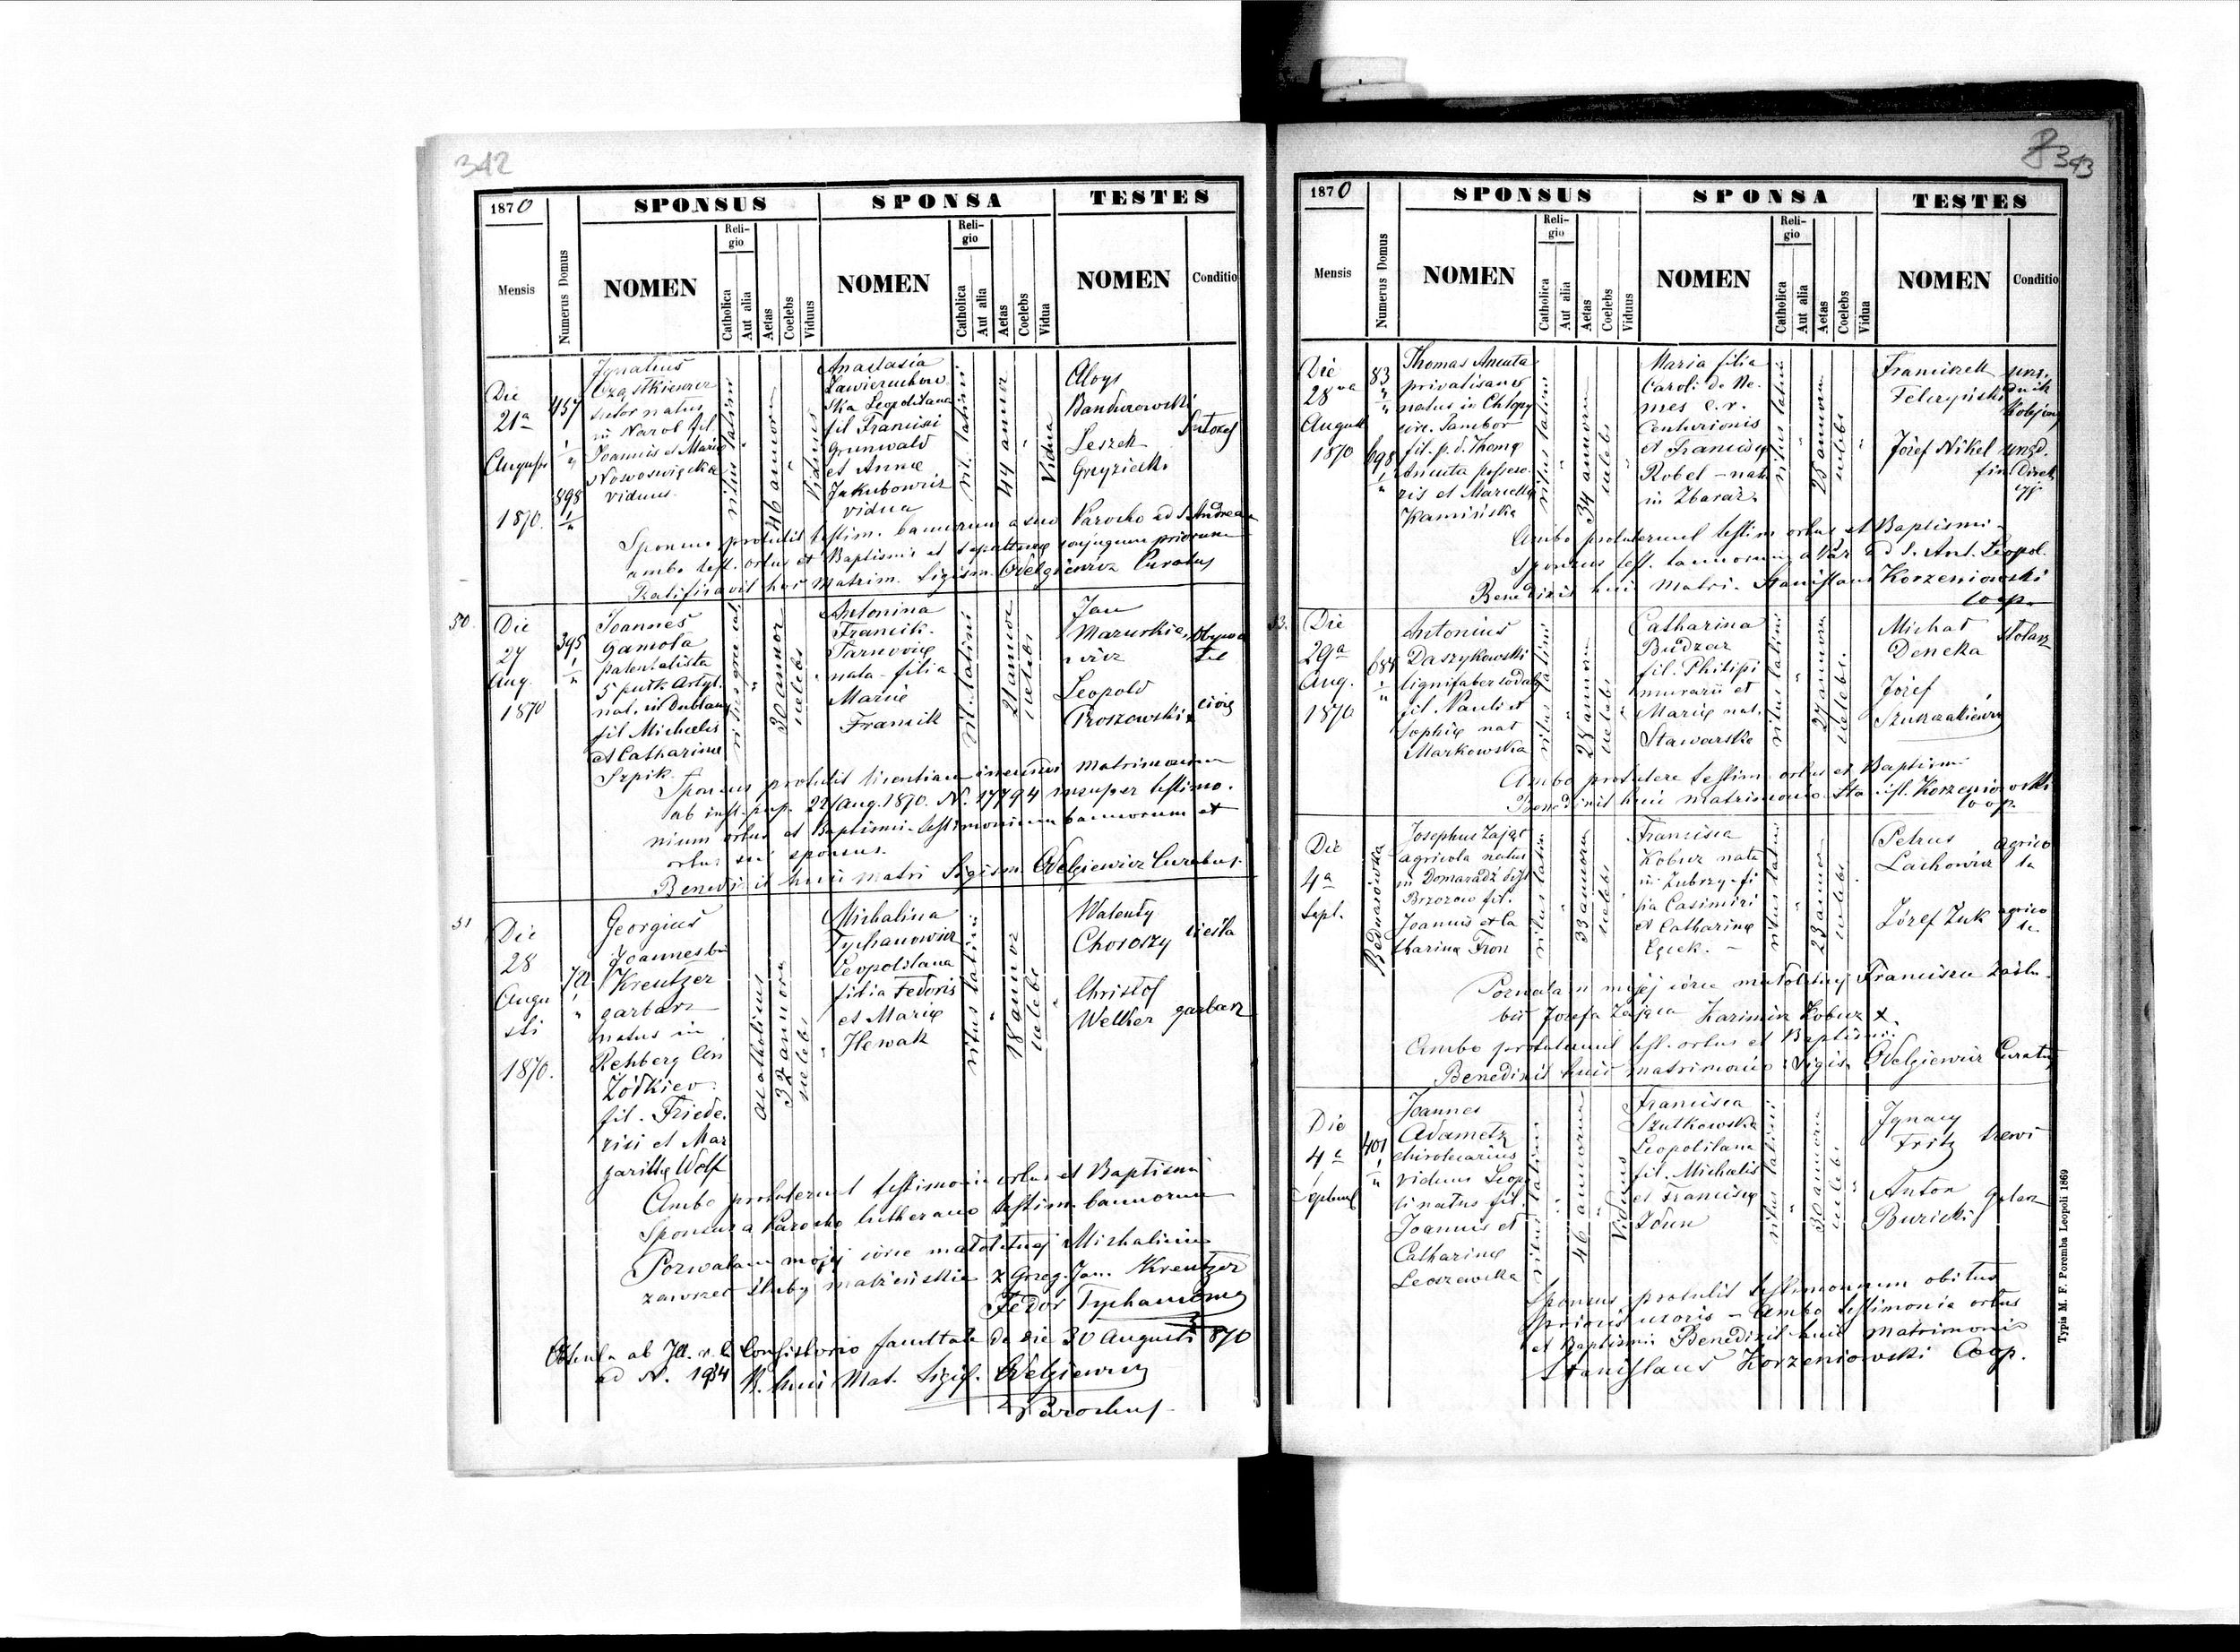 342
1870
SPONSUS
SPONSA
TESTES
Mensis
Numerus Domus
NOMEN
Religio
Catholica
Aut alia
Aetas
Coelebs
Viduus
NOMEN
Religio
Catholica
Aut alia
Aetas
Coelebs
Vidua
NOMEN
Conditio
Die
21a
Augusti
1870.
457
898
Ignatius
sutor natus
in Narol fil
Joannis et Mariæ
viduus.
ritus latini
46 annorum
Viduus
Anastasia
Zawieruchow
ska Leopolitana
fil Francisci
Grunwald
et Annæ
Jakubowicz
vidua
rit. latini
44 annor
Vidua
Aloys
Bandurowski
Leszek
Sponsus protulit testim. bannorum a suo Parocho ad S. Andream
ambo test. ortus et Baptismi et sepulturæ conjugum priorum
Ratificavit huic Matrim. Sigism. Odelgiewicz Curatus
50.
Die
27
Aug.
1870
395
Joannes
Gamota
patentalista
5 pułk Artyl.
nat. in Dublany
fil Michaelis
et Catharinæ
Szpik.
ritus græc cat
30 annor
coelebs
Antonina
Francik.
Tarnoviæ
nata - filia
Mariæ
Francik
rit. latini
21 annor
coelebs
Jan
Mazurkie
wicz
Obywa
tel
Leopold
Proszowski
Sponsus protulit licentiam ineundi matrimonium
ab inst. 22/Aug. 1870. N. 17794 insuper testimo.
nium ortus et Baptismi testimonium bannorum et
ortus sponsus.
Benedixit huic matri Sigism. Odelgiewicz Curatus.
51
Die
28
Augu
sti
1870.
70
Georgius
Joannes
Kreutzer
garbarz
natus in
Rehberg
Żółkiew
fil. Friede.
rici et Mar
garithæ Wolf
acatholicus
32 annorum
coelebs
Michalina
Tychanowicz
Leopolitana
filia Fedoris
et Mariæ
Hewak
ritus latini
18 annor
coelebs
Walenty
Chorószy
cieśla
Christof
Welker
garbarz
Ambo protulerunt testimonia ortus et Baptismi
Sponsus a Parocho lutherano testim. bannorum
Pozwalam mojej córce małoletniej Michalinie
zawrzeć śluby małżeńskie z Grzeg. Jan. Kreutzer
Fedor Tychanowicz
Obtenta ab Ill. r. l. Consistorio facultate de die 30 Augusti 870
ad N. 1934 B. huic Mat. Sigis. Odelgiewicz
Parochus.
343
1870
SPONSUS
SPONSA
TESTES
Mensis
Numerus Domus
NOMEN
Religio
Catholica
Aut alia
Aetas
Coelebs
Viduus
NOMEN
Religio
Catholica
Aut alia
Aetas
Coelebs
Vidua
NOMEN
Conditio
Die
28va
Augusti
1870
83
698
Thomas Aneuta
privatisans
natus in Chłopy
circ. Sambor
fil. p. d. Thomæ
Aneuta possesso.
ris et Mariellæ
Kamińska
ritus latini
34 annorum
coelebs
Maria filia
Caroli de Ne.
mes c. r.
Centurionis
et Franciscæ
Robel - nat.
in Zbaraż
ritus latini
25 annorum
coelebs
Franciszek
Felczyński
urzę
dnik
kolejowy
Józef Nikel
urzęd.
fin. Direk
cyi
Ambo protulerunt testim. ortus et Baptismi
Sponsus test. bannorum a Par. ad S. Ant. Leopol.
Benedixit huic matri. Stanislaus Korzeniowski
coop.
53.
Die
29a
Aug.
1870
684
Antonius
Daszykowski
lignifaber sodalis
fil. Pauli et
Sophiæ nat
Markowska
ritus latini
28 annorum
coelebs
Catharina
Budzar
fil. Philipi
murarii et
Mariæ nat.
Stawarska
ritus latini
27 annorum
coelebs.
Michał
Deneka
stolarz
Józef
Szukzakiewicz
Ambo protulere testim. ortus et Baptismi
Benedixit huic matrimonio Stanisl. Korzeniowski
coop.
Die
4a
Sept.
Bednarówka
Josephus Zając
agricola natus
in Domaradz distr
Brzozow fil.
Joannis et Ca
tharinæ Fron
ritus latini
33 annorum
coelebs
Francisca
Kobuz nata
in Zubrzy - fi
lia Casimiri
et Catharinæ
ritus latini
23 annor
coelebs
Petrus
Lachowicz
agrico
la
Józef Żuk
agrico
la
Pozwalam mojej córce małoletniej Franciszce zaślu.
bić Józefa Zająca Kazimierz Kobuz X
Ambo protulerunt test. ortus et Baptismi.
Benedixit huic matrimonio: Sigis. Odelgiewicz Curatus
Die
4a
Septemb
401
Joannes
Adametz
chirotecarius
viduus Leopo
li natus fil.
Joannis et
Catharinæ
Leoszewska
ritus latini
46 annorum
Viduus
Francisca
Szutkowska
Leopolitana
fil. Michaelis
et Franciscæ
Zdun
ritus latini
30 annorum
coelebs
Ignacy
Fritz
szewc
Anton
Buzicki
Sponsus protulit testimonium obitus
prioris uxoris - Ambo testimonia ortus
et Baptismi Benedixit huic matrimonio
Stanislaus Korzeniowski Coop.
Typis M. F. Poremba Leopoli 1869